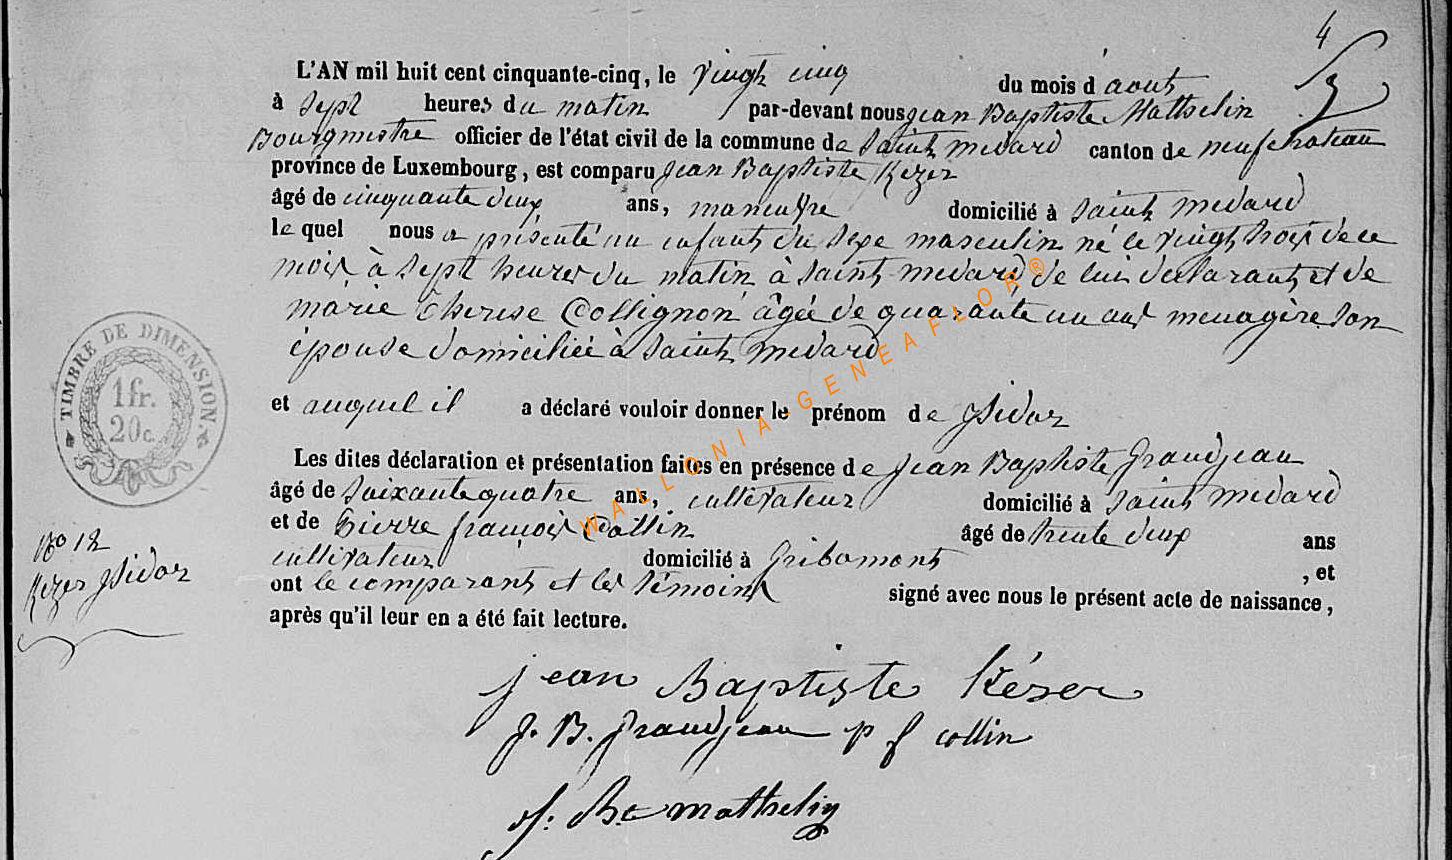 4
L'AN mil huit cent cinquante-cinq, le vingt cinq du mois d'aout
à sept heures du matin par-devant nous jean Baptiste Mathelin
Bourgmestre officier de l'état civil de la commune de saint medard canton de neufchateau
province de Luxembourg, est comparu Jean Baptiste Kezer
âgé de cinquante deux ans, manœuvre domicilié à saint medard
le quel nous a présenté un enfant du sexe masculin né le vingt trois de ce
mois à sept heures du matin à saint medard, de lui déclarant et de
marie therese Collignon âgée de quarante un ans menagère son
épouse domiciliée à saint medard
et auquel il a déclaré vouloir donner le prénom de jsidor
Les dites déclaration et présentation faites en présence de Jean Baptiste Grandjean
âgé de soixante quatre ans, cultivateur domicilié à saint medard
et de Pierre françois Collin âgé de trente deux ans
cultivateur domicilié à Gribomont , et
ont le comparant et les témoins signé avec nous le présent acte de naissance,
après qu'il leur en a été fait lecture.
TIMBRE DE DIMENSION.
1 fr.
20 c.
No 12
Kezer jsidor
jean Baptiste Késer
J. B. Grandjean p f collin
J. Bte mathelin
WALLONIA-GENEAFLOR®